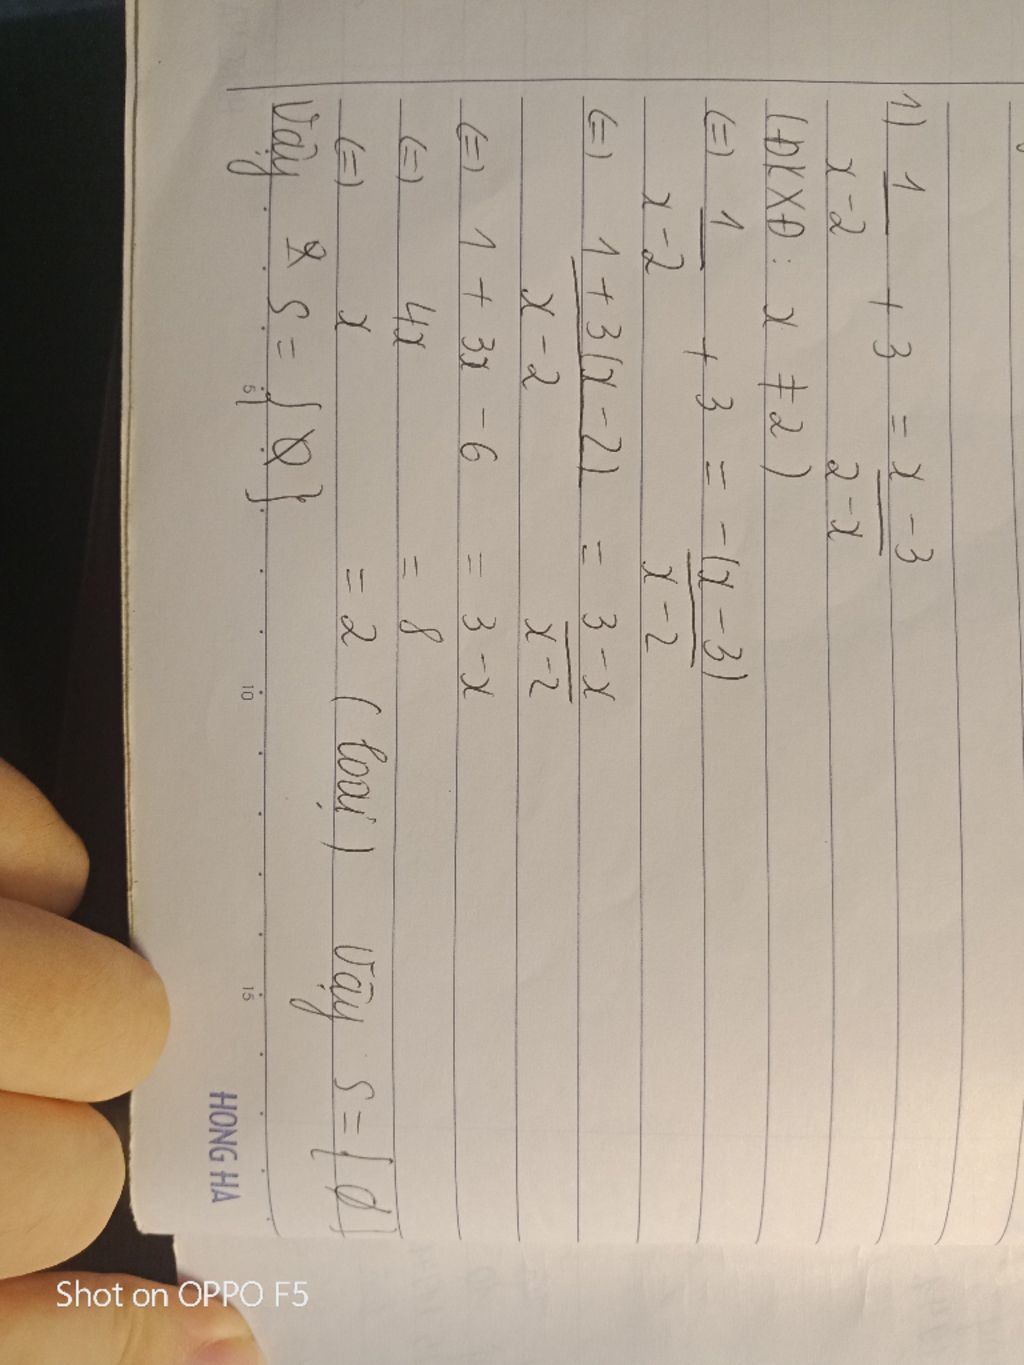 1) 1/(x-2) + 3 = (x-3)/(2-x)
(ĐKXĐ: x ≠ 2)
(=) 1/(x-2) + 3 = -(x-3)/(x-2)
(=) (1+3(x-2))/(x-2) = (3-x)/(x-2)
(=) 1 + 3x - 6 = 3-x
(=) 4x = 8
(=) x = 2 (loại) Vậy S = {∅}
Vậy S = {∅}
5
10
15
HONG HA
Shot on OPPO F5